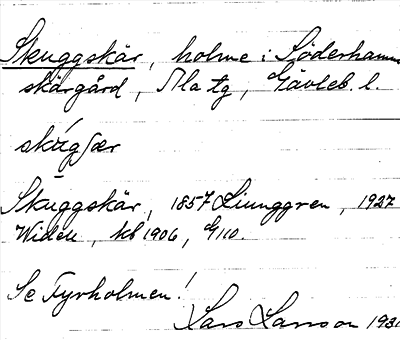 Skuggskär, holme i Söderhamns
skärgård, Ala tg, Gävleb. l.
Skuggskär, 1857 Ljunggren, 1927
Widell, kb 1906, G110.
Se Fyrholmen!
Lars Larsson 193